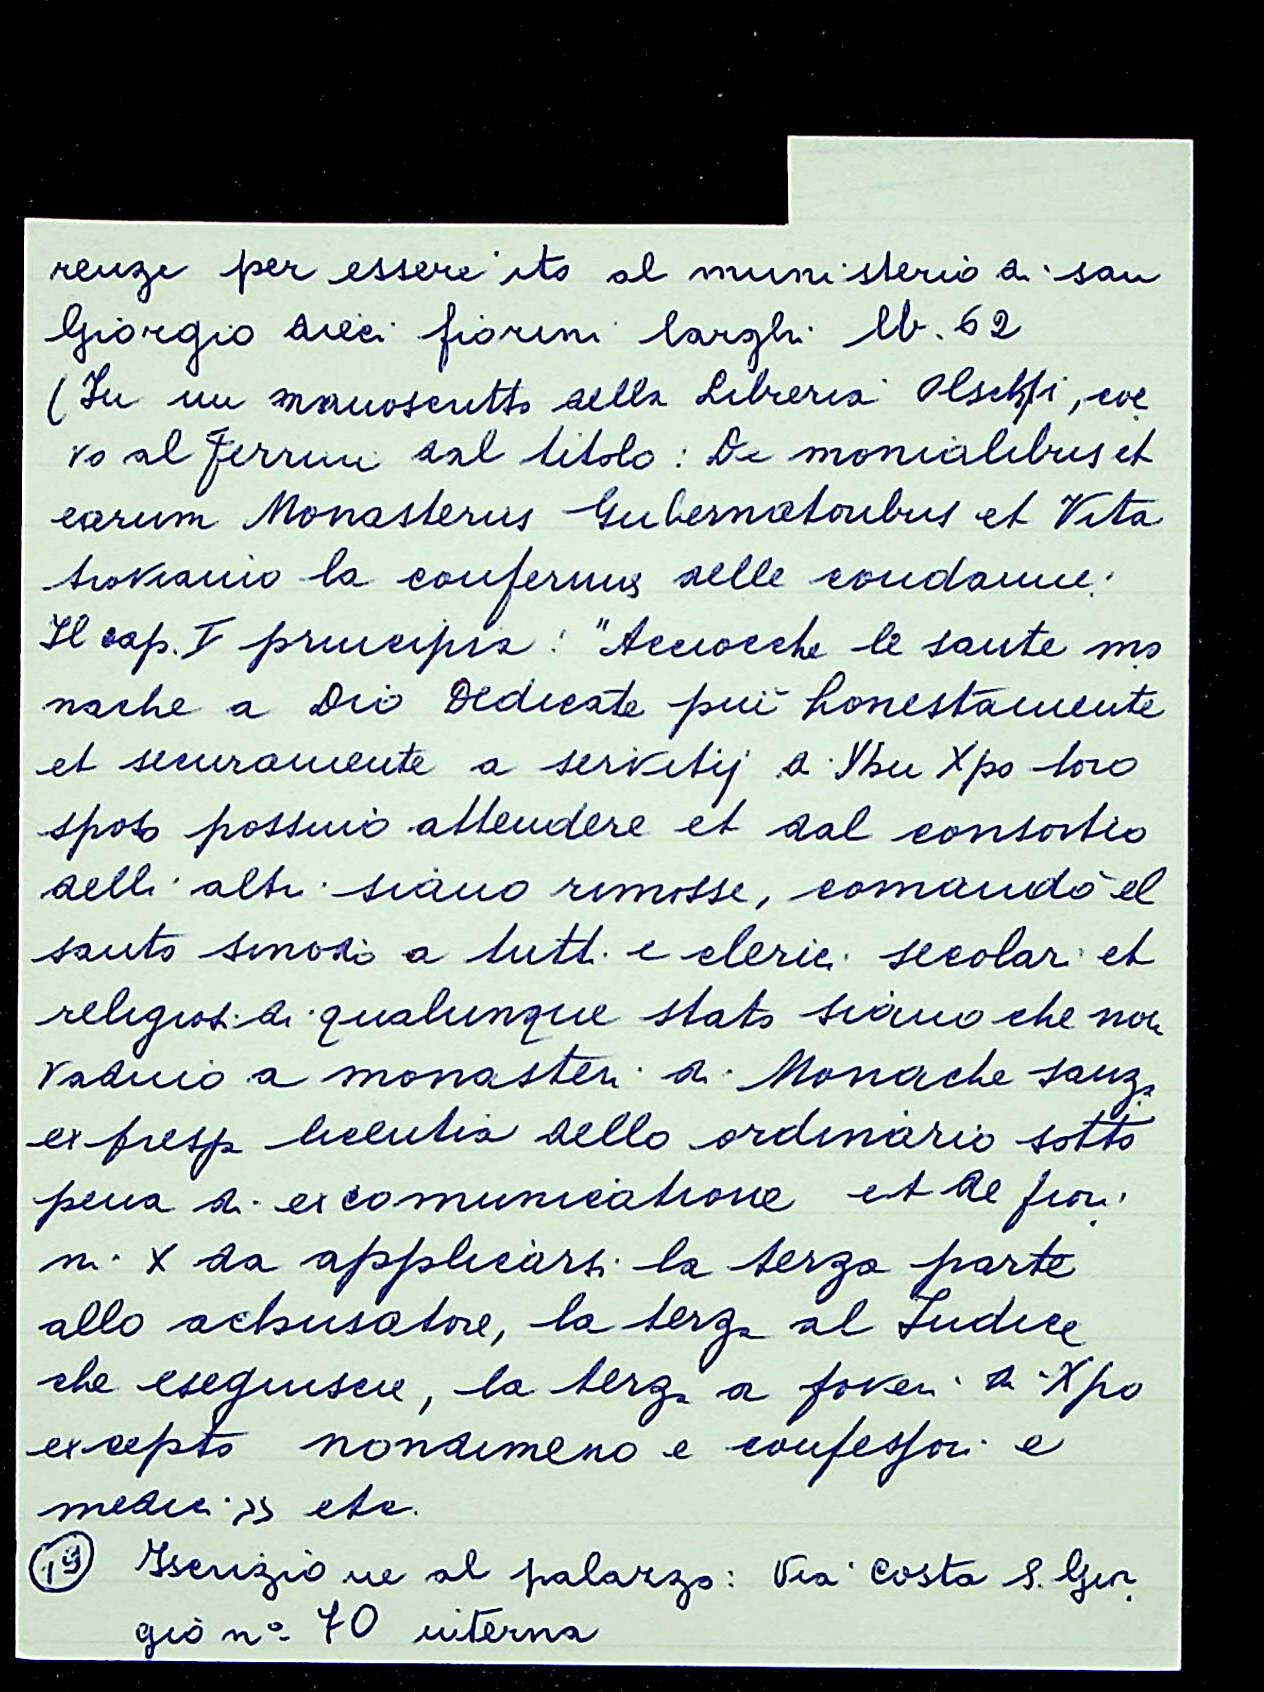 renze per essere ito al munisterio di san
Giorgio dieci fiorini larghi lb. 62
(In un manoscritto della Libreria Olschki, coe
vo al Ferrini dal titolo: De monialibus et
earum Monasteriis Gubernatoribus et Vita
troviamo la conferma delle condanne:
Il cap. I principia: "Acciocche le sante mo
nache a Dio Dedicate più honestamente
et securamente a servitij di Yhu Xpo loro
sposo possino attendere et dal consortio
delli altri siano rimosse, comandò el
santo sinodo a tutti e clerici secolari et
religiosi di qualunque stato siano che non
vadino a monasteri di Monache sanza
expressa licentia dello ordinario sotto
pena di excomunicatione et de fiori
ni X da applicarsi la terza parte
allo achusatore, la terza al Iudice
che eseguisce, la terza a poveri di Xpo
excepto nondimeno e confessori e
medici» etc.
19 Iscrizione al palazzo: Via Costa S. Gior
gio n° 70 interna